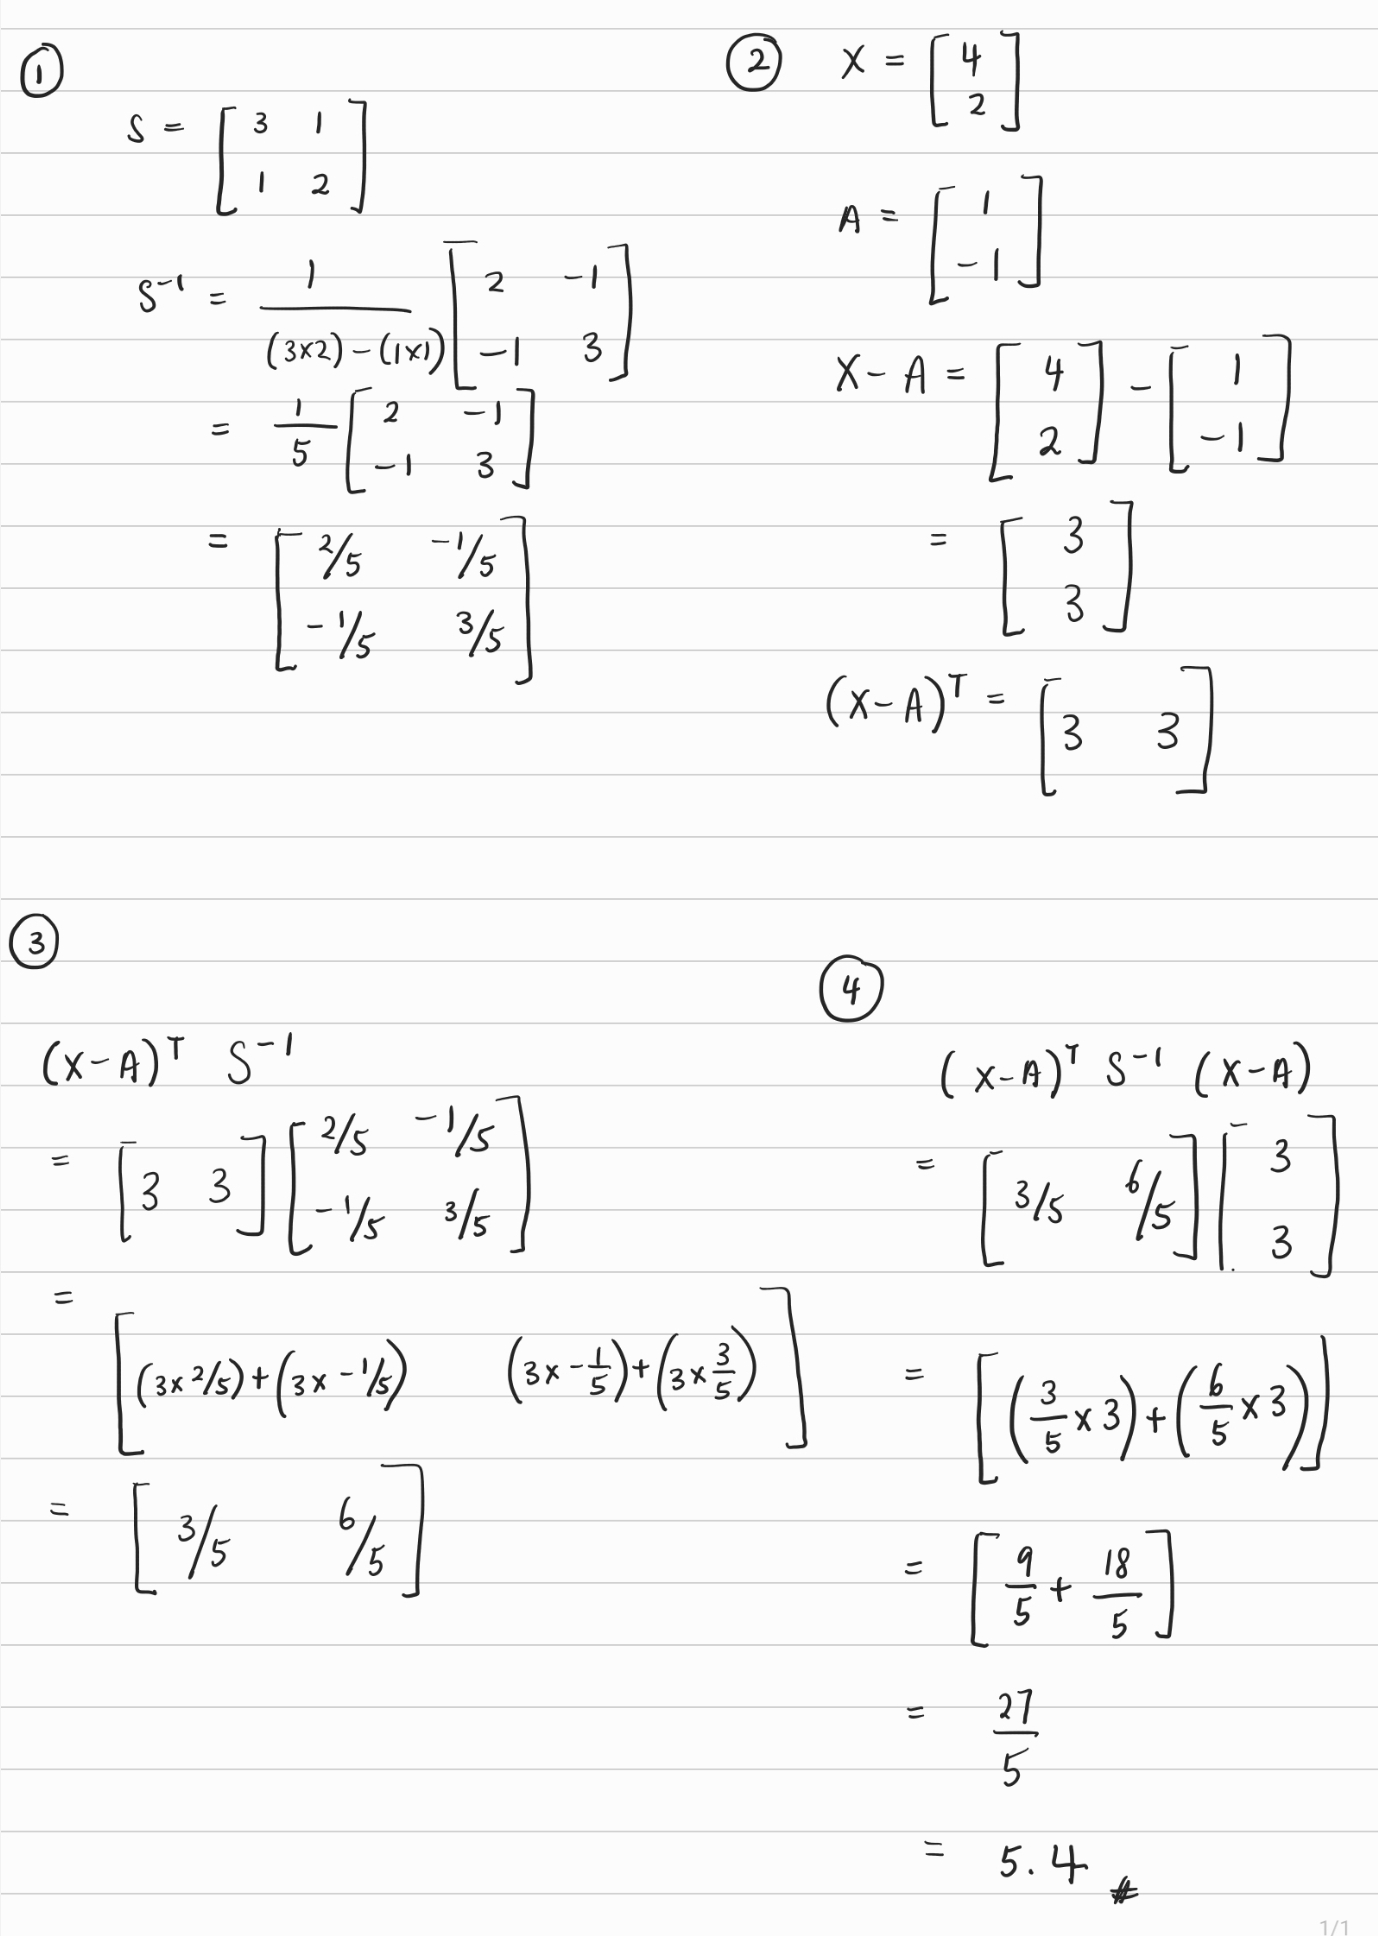 ①
S = [ 3 1
1 2 ]
S⁻¹ = 1 / (3×2) − (1×1) [ 2 −1
−1 3 ]
= 1/5 [ 2 −1
−1 3 ]
= [ 2/5 −1/5
−1/5 3/5 ]
② X = [ 4
2 ]
A = [ 1
−1 ]
X − A = [ 4
2 ] − [ 1
−1 ]
= [ 3
3 ]
(X−A)ᵀ = [ 3 3 ]
③
(X−A)ᵀ S⁻¹
= [ 3 3 ] [ 2/5 −1/5
−1/5 3/5 ]
= [ (3×2/5)+(3×−1/5) (3×−1/5)+(3×3/5) ]
= [ 3/5 6/5 ]
④
(X−A)ᵀ S⁻¹ (X−A)
= [ 3/5 6/5 ] [ 3
3 ]
= [ (3/5 × 3)+(6/5 × 3) ]
= [ 9/5 + 18/5 ]
= 27/5
= 5.4 #
1/1